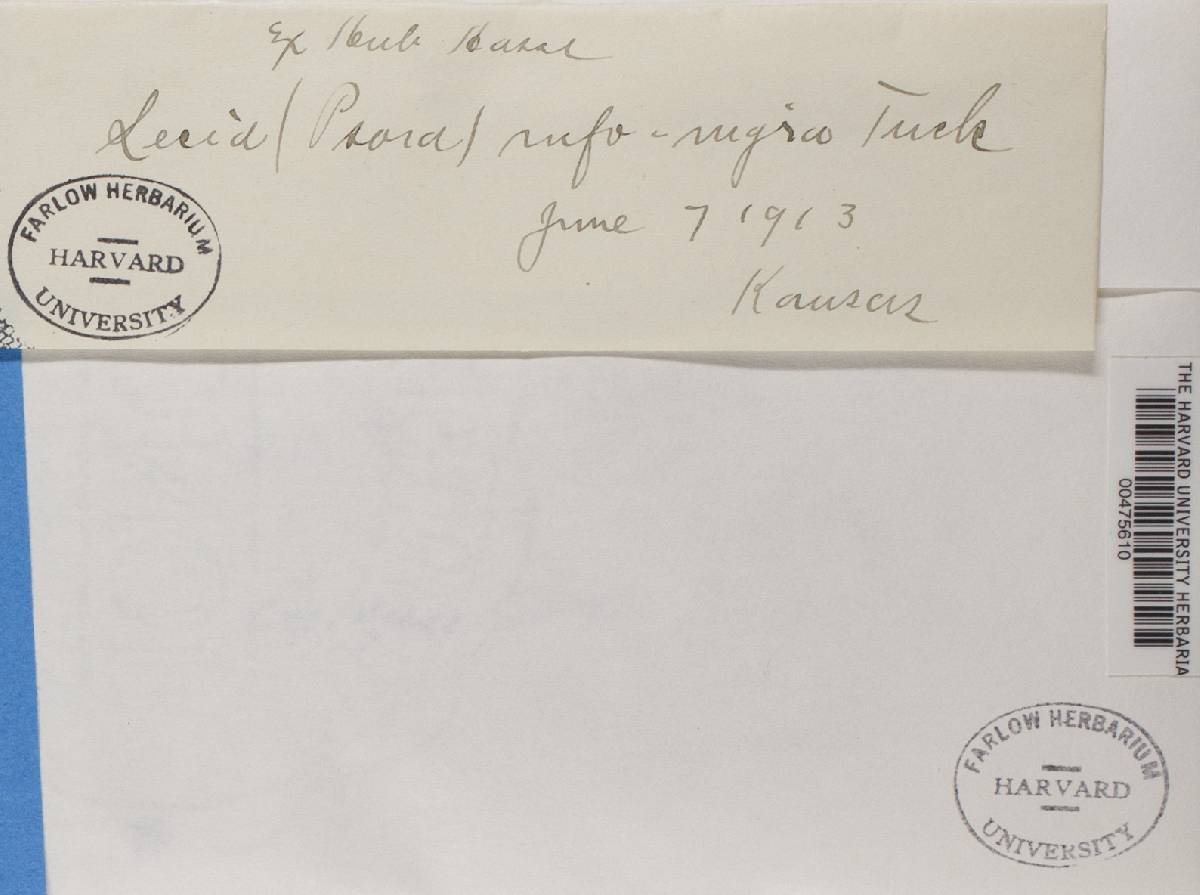 Ex Herb Hasse
Lecid (Psora) rufo-nigra Tuck
June 7 1913
Kansas
FARLOW HERBARIUM
HARVARD
UNIVERSITY
THE HARVARD UNIVERSITY HERBARIA
00475610
FARLOW HERBARIUM
HARVARD
UNIVERSITY